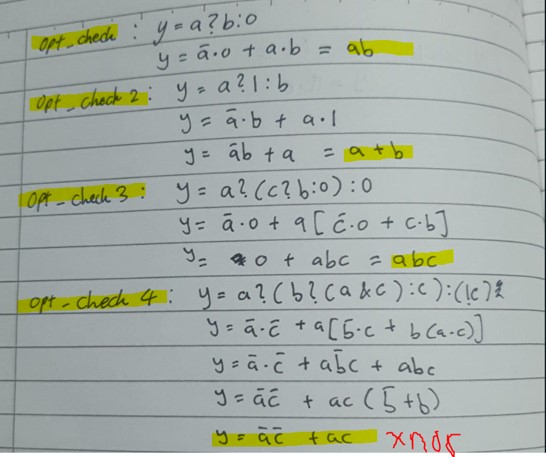 opt_check : y = a?b:0
y = ā·0 + a·b = ab
opt_check 2 : y = a?1:b
y = ā·b + a·1
y = āb + a = a+b
opt_check 3 : y = a?(c?b:0):0
y = ā·0 + a[c̄·0 + c·b]
y = 0 + abc = abc
opt_check 4 : y = a?(b?(a&c):c):(!c)
y = ā·c̄ + a[b̄·c + b(a·c)]
y = ā·c̄ + ab̄c + abc
y = āc̄ + ac(b̄+b)
y = āc̄ + ac xnor